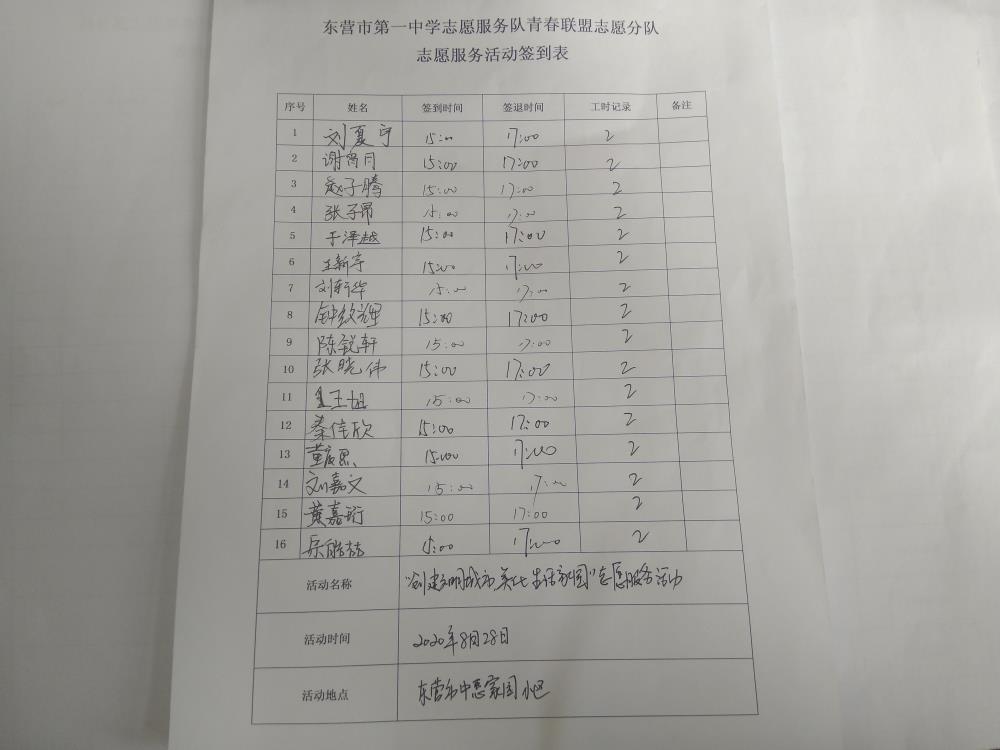 东营市第一中学志愿服务队青春联盟志愿分队
志愿服务活动签到表
序号 姓名 签到时间 签退时间 工时记录 备注
1 刘夏宁 15:00 17:00 2
2 谢雨月 15:00 17:00 2
3 赵子腾 15:00 17:00 2
4 张子昂 15:00 17:00 2
5 于泽越 15:00 17:00 2
6 王新宇 15:00 17:00 2
7 刘轩华 15:00 17:00 2
8 15:00 17:00 2
9 陈锐轩 15:00 17:00 2
10 张晓伟 15:00 17:00 2
11 15:00 17:00 2
12 秦佳欣 15:00 17:00 2
13 15:00 17:00 2
14 刘嘉文 15:00 17:00 2
15 黄嘉珩 15:00 17:00 2
16 15:00 17:00 2
活动名称 "创建文明城市 美化生活家园"志愿服务活动
活动时间 2020年8月28日
活动地点 东营市中愿家园小区